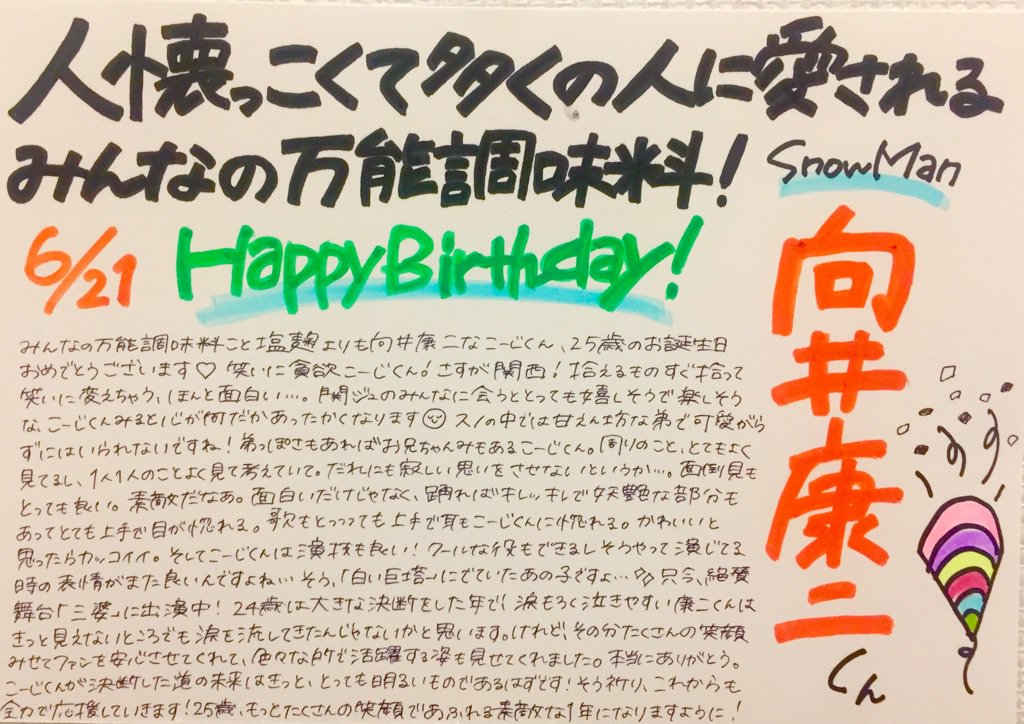 人懐っこくて多くの人に愛される
みんなの万能調味料!
SnowMan
向井康二くん
6/21
HappyBirthday!
みんなの万能調味料こと塩麹よりも向井康二なこーじくん、25歳のお誕生日
おめでとうございます♡ 笑いに貪欲こーじくん!さすが関西!拾えるものすぐ拾って
笑いに変えちゃう、ほんと面白い…。関ジュのみんなに会うととっても嬉しそうで楽しそう
な、こーじくんみると心が何だかあったかくなります☺ スノの中では甘えん坊な弟で可愛がら
ずにはいられないですね!弟っぽさもあればお兄ちゃんみもあるこーじくん。周りのこと、とてもよく
見てるし、1人1人のことよく見て考えていて。だれにも寂しい思いをさせないというか…。面倒見も
とっても良い。素敵だなあ。面白いだけじゃなく、踊ればキレッキレで妖艶な部分も
あってとても上手で目が惚れる。歌もとっっっても上手で耳もこーじくんに惚れる。かわいいと
思ったらカッコイイ。そしてこーじくんは演技も良い!クールな役もできるしそうやって演じてる
時の表情がまた良いんですよね…そう、「白い巨塔」にでていたあの子ですよ…只今、絶賛
舞台「三婆」に出演中!24歳は大きな決断をした年で、涙もろく泣きやすい康二くんは
きっと見えないところでも涙を流してきたんじゃないかと思います。けれど、その分たくさんの笑顔
みせてファンを安心させてくれて、色々な所で活躍する姿も見せてくれました。本当にありがとう。
こーじくんが決断した道の未来はきっと、とても明るいものであるはずです!そう祈り、これからも
全力で応援していきます!25歳、もっとたくさんの笑顔であふれる素敵な1年になりますように!